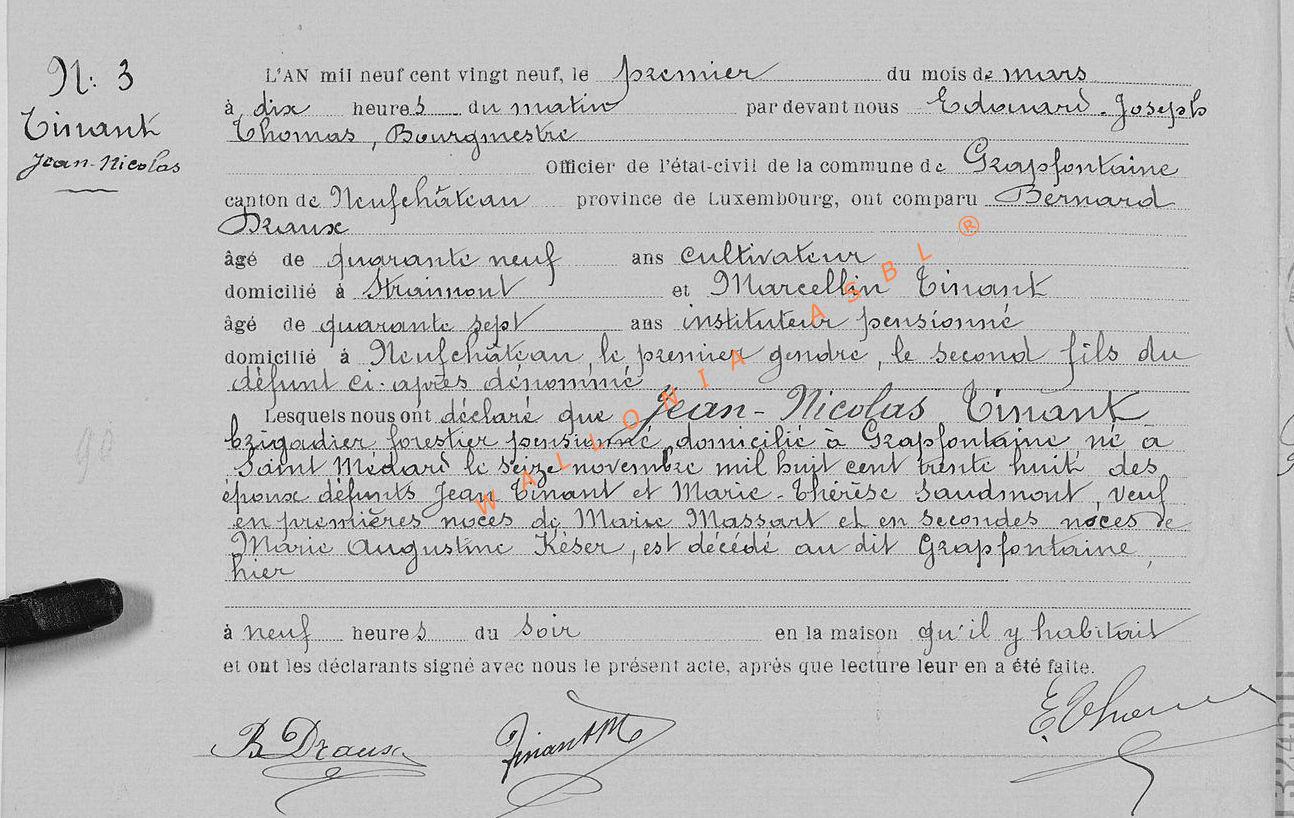 N: 3
Tinant
Jean-Nicolas
L'AN mil neuf cent vingt neuf, le premier du mois de mars
à dix heures du matin par devant nous Edouard-Joseph
Thomas, Bourgmestre
Officier de l'état-civil de la commune de Grapfontaine
canton de Neufchâteau province de Luxembourg, ont comparu Bernard
Draux
âgé de quarante neuf ans cultivateur
domicilié à Straimont et Marcellin Tinant
âgé de quarante sept ans instituteur pensionné
domicilié à Neufchâteau, le premier gendre, le second fils du
défunt ci-après dénommé
Lesquels nous ont déclaré que Jean-Nicolas Tinant
brigadier forestier pensionné, domicilié à Grapfontaine né à
Saint Médard le seize novembre mil huit cent trente huit des
époux défunts Jean Tinant et Marie-Thérèse Saudmont, veuf
en premières noces de Marie Massart et en secondes noces de
Marie Augustine Késer, est décédé au dit Grapfontaine,
hier
à neuf heures du soir en la maison qu'il y habitait
et ont les déclarants signé avec nous le présent acte, après que lecture leur en a été faite.
B Draux Tinant M E. Thomas
WALLONIA ASBL ®
90